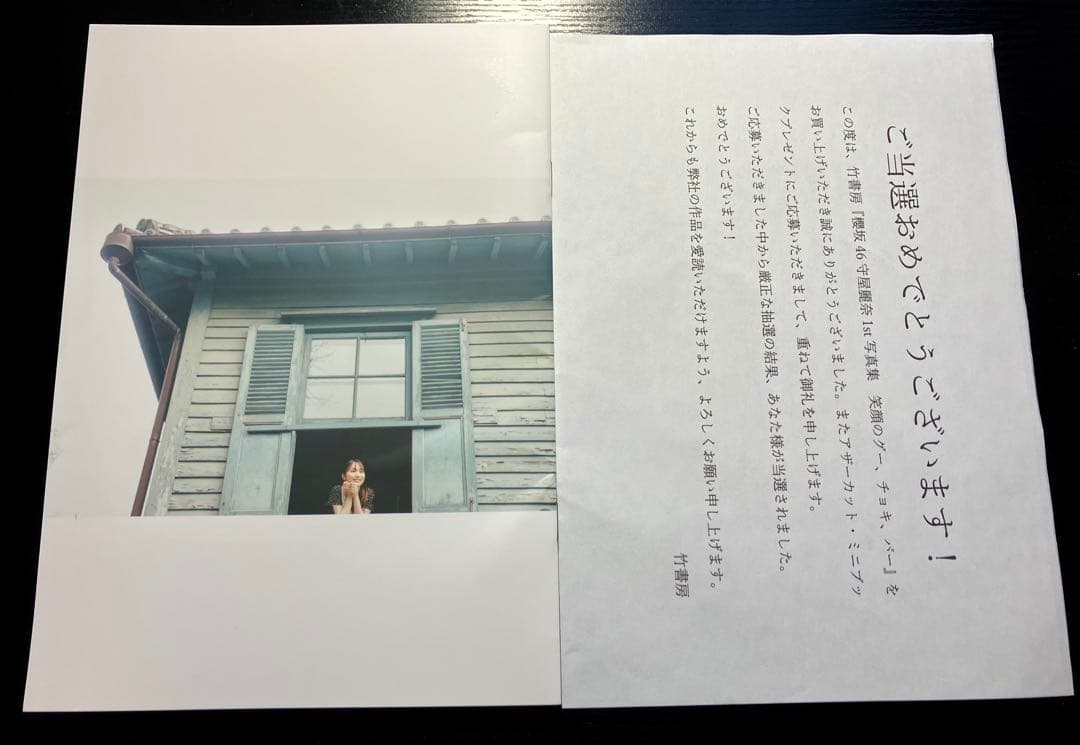 ご当選おめでとうございます！
この度は、竹書房『櫻坂46守屋麗奈1st写真集　笑顔のグー、チョキ、パー』を
お買い上げいただき誠にありがとうございました。またアザーカット・ミニブッ
クプレゼントにご応募いただきまして、重ねて御礼を申し上げます。
ご応募いただきました中から厳正な抽選の結果、あなた様が当選されました。
おめでとうございます！
これからも弊社の作品を愛読いただけますよう、よろしくお願い申し上げます。
竹書房